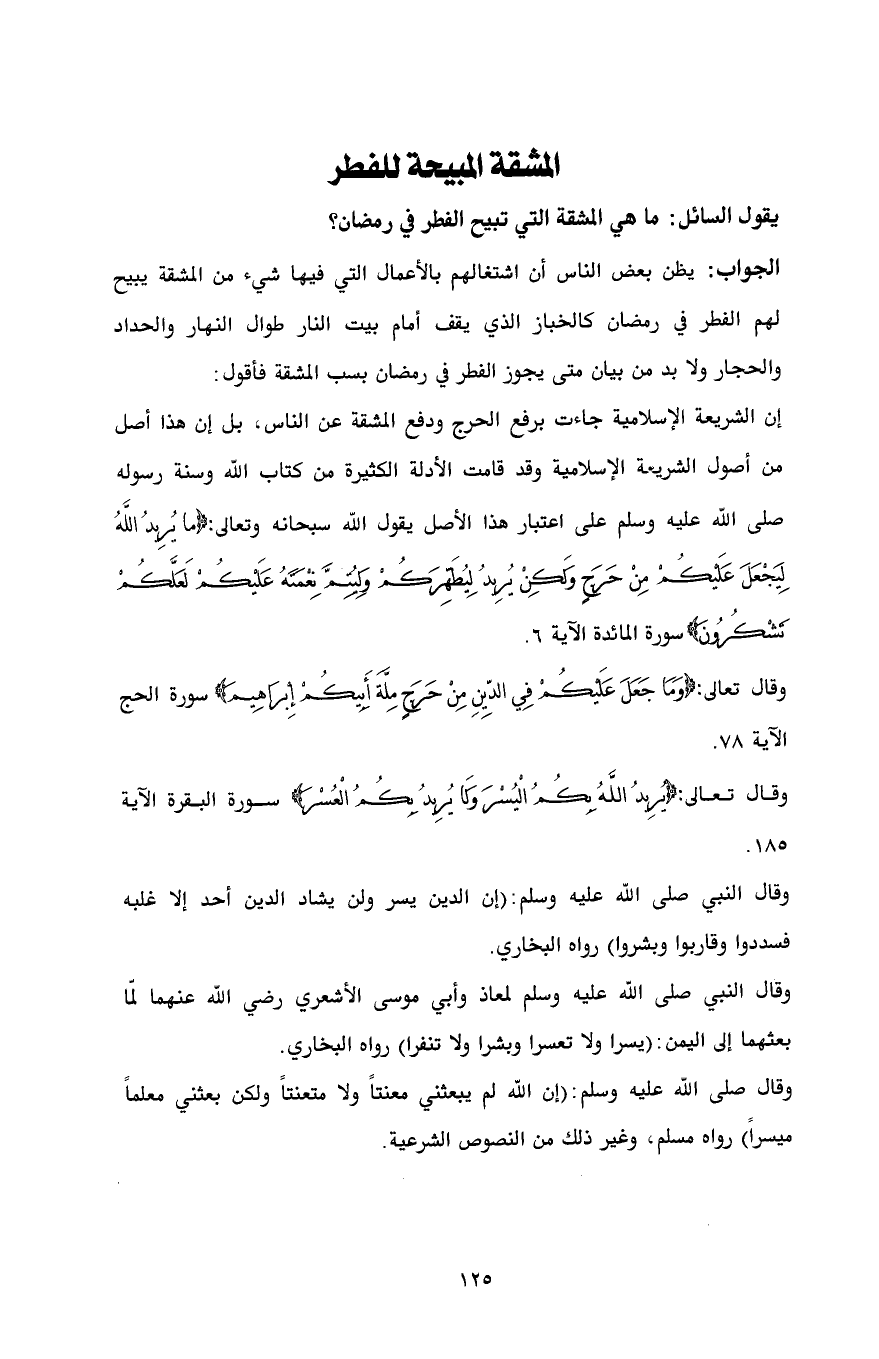 المشقة المبيحة للفطر
يقول السائل: ما هي المشقة التي تبيح الفطر في رمضان؟
الجواب: يظن بعض الناس أن اشتغالهم بالأعمال التي فيها شيء من المشقة يبيح
لهم الفطر في رمضان كالخباز الذي يقف أمام بيت النار طوال النهار والحداد
والحجار ولا بد من بيان متى يجوز الفطر في رمضان بسب المشقة فأقول:
إن الشريعة الإسلامية جاءت برفع الحرج ودفع المشقة عن الناس، بل إن هذا أصل
من أصول الشريعة الإسلامية وقد قامت الأدلة الكثيرة من كتاب الله وسنة رسوله
صلى الله عليه وسلم على اعتبار هذا الأصل يقول الله سبحانه وتعالى:﴿مَا يُرِيدُ اللَّهُ
لِيَجْعَلَ عَلَيْكُمْ مِنْ حَرَجٍ وَلَكِنْ يُرِيدُ لِيُطَهِّرَكُمْ وَلِيُتِمَّ نِعْمَتَهُ عَلَيْكُمْ لَعَلَّكُمْ
تَشْكُرُونَ﴾ سورة المائدة الآية ٦.
وقال تعالى:﴿وَمَا جَعَلَ عَلَيْكُمْ فِي الدِّينِ مِنْ حَرَجٍ مِلَّةَ أَبِيكُمْ إِبْرَاهِيمَ﴾ سورة الحج
الآية ٧٨.
وقال تعالى:﴿يُرِيدُ اللَّهُ بِكُمُ الْيُسْرَ وَلَا يُرِيدُ بِكُمُ الْعُسْرَ﴾ سورة البقرة الآية
١٨٥.
وقال النبي صلى الله عليه وسلم:(إن الدين يسر ولن يشاد الدين أحد إلا غلبه
فسددوا وقاربوا وبشروا) رواه البخاري.
وقال النبي صلى الله عليه وسلم لمعاذ وأبي موسى الأشعري رضي الله عنهما لمّا
بعثهما إلى اليمن:(يسرا ولا تعسرا وبشرا ولا تنفرا) رواه البخاري.
وقال صلى الله عليه وسلم:(إن الله لم يبعثني معنتاً ولا متعنتاً ولكن بعثني معلماً
ميسراً) رواه مسلم، وغير ذلك من النصوص الشرعية.
١٢٥